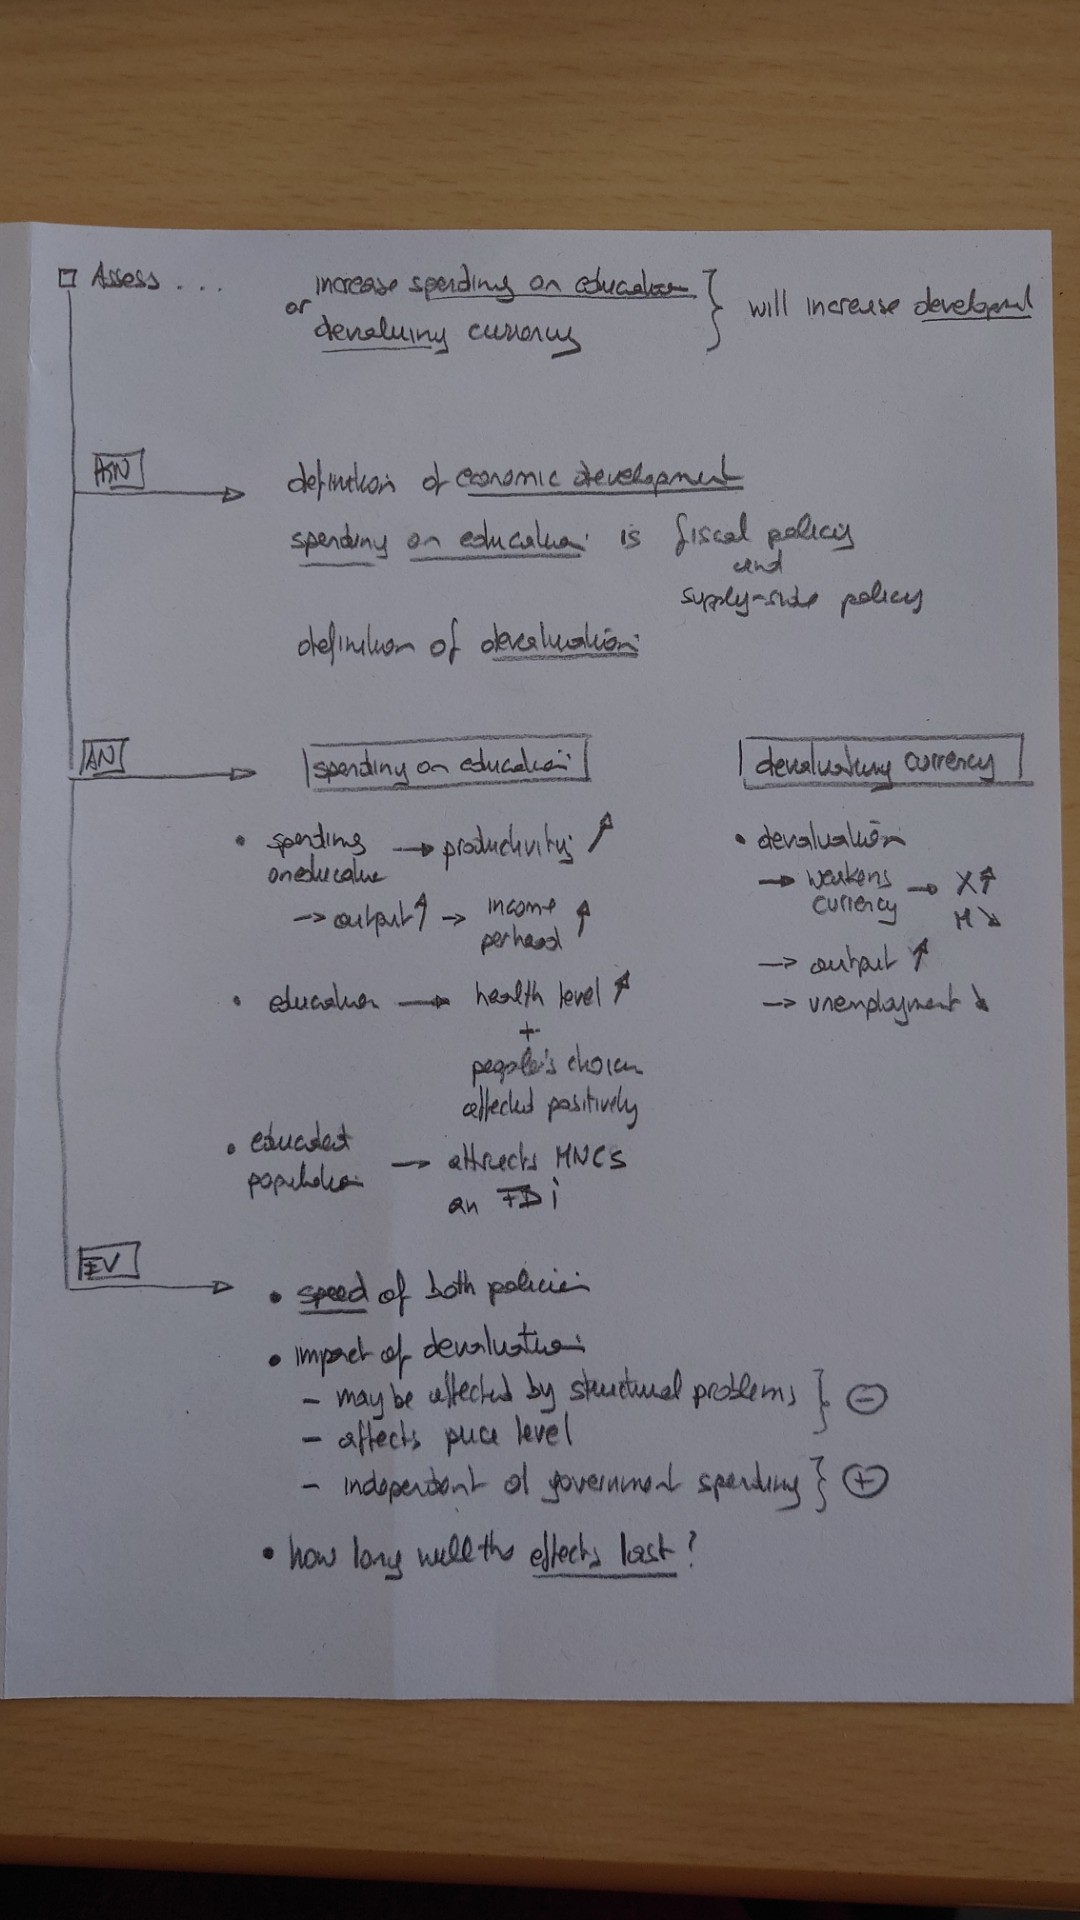 Assess ...
increase spending on education
or
devaluing currency
will increase development
KN
definition of economic development
spending on education is fiscal policy
and
supply-side policy
definition of devaluation
AN
spending on education
devaluating currency
• spending → productivity ↑
on education
→ output ↑ → income
per head ↑
• education → health level ↑
+
people's choices
affected positively
• educated
population → attracts MNCS
an FDi
• devaluation
→ weakens → X ↑
currency M ↘
→ output ↑
→ unemployment ↘
EV
• speed of both policies
• impact of devaluation
- may be affected by structural problems } ⊖
- affects price level
- independent of government spending } ⊕
• how long will the effects last?